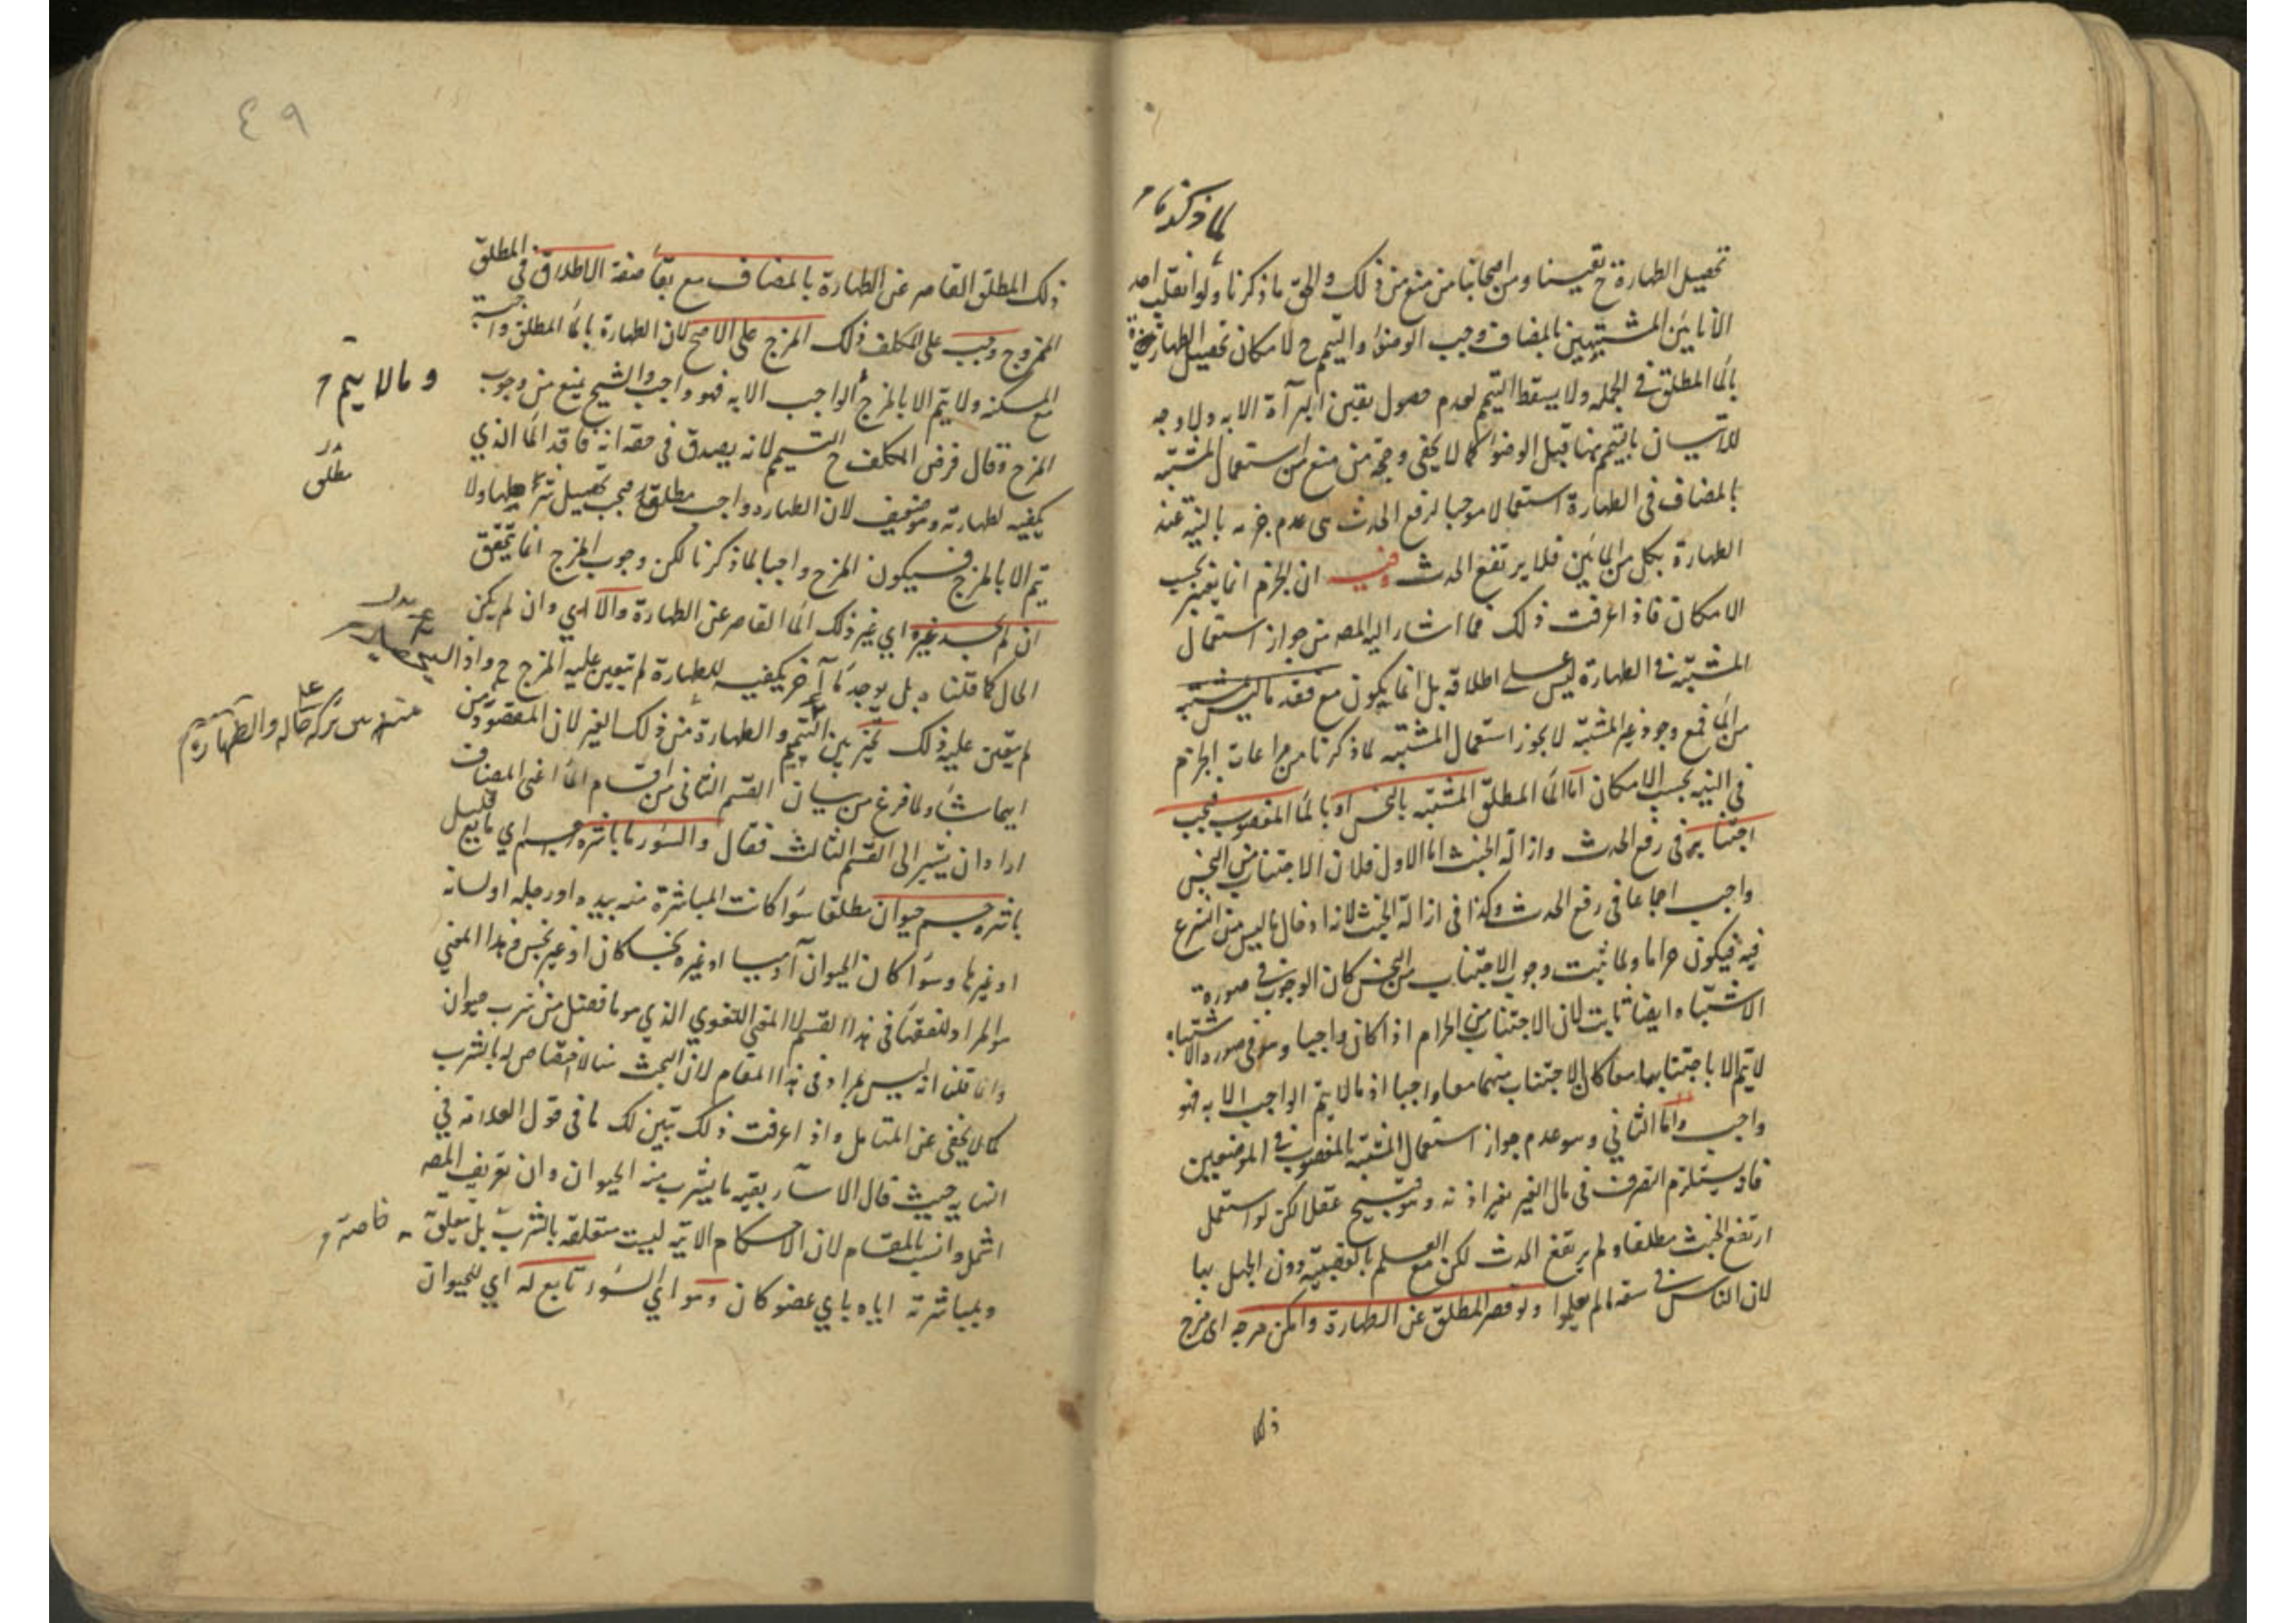 لما ذكرناه
تحصيل الطهارة ح يقينا ومن اصحابنا من منع من ذلك والحق ما ذكرنا ولو انقلب احد
الانائين المشتبهين بالمضاف وجب الوضوء والتيمم ح لامكان تحصيل الطهارة
بالماء المطلق في الجمله ولا يسقط التيمم لعدم حصول يقين البرآءة الا به ولا وجه
للاتيان بالتيمم هنا قبل الوضوء كما لا يخفى وحجة من منع من استعمال المشتبه
بالمضاف في الطهارة استعمالا موجبا لرفع الحدث هى عدم جزمه بالنية عند
الطهارة بكل من المائين فلا يرتفع الحدث وفيه ان الجزم انما يعتبر بحسب
الامكان فاذا عرفت ذلك فما اشار اليه المص من جواز استعمال
المشتبه في الطهارة ليس على اطلاقه بل انما يكون مع فقد ما ليس بمشتبه
من الماء فمع وجود غير المشتبه لا يجوز استعمال المشتبه لما ذكرنا من مراعات الجزم
في النيه بحسب الامكان اما الماء المطلق المشتبه بالنجس او بالماء المغصوب فيجب
اجتنابه في رفع الحدث وازالة الخبث اما الاول فلان الاجتناب من النجس
واجب اجماعا في رفع الحدث وكذا في ازالة الخبث لانه ادخال ما ليس من الشرع
فيه فيكون حراما ولما ثبت وجوب الاجتناب من النجس كان الوجوب في صورة
الاشتباه ايضا ثابت لان الاجتناب من الحرام اذا كان واجبا وهو في صورة الاشتباه
لا يتم الا باجتنابهما معا كان الاجتناب منهما معا واجبا اذ ما لا يتم الواجب الا به فهو
واجب واما الثاني وهو عدم جواز استعمال المشتبه بالمغصوب في الموضعين
فلانه يستلزم التصرف في مال الغير بغير اذنه وهو قبيح عقلا لكن لو استعمل
ارتفع الخبث مطلقا ولم يرتفع الحدث لكن مع العلم بالغصبيه دون الجهل بها
لان الناس في سعة ما لم يعلموا ولو قصر المطلق عن الطهارة وامكن مزجه اى مزج
ذلك
٤٩
ذلك المطلق القاصر عن الطهارة بالمضاف مع بقاء صفة الاطلاق في المطلق
الممزوج وجب على المكلف ذلك المزج على الاصح لان الطهارة بالماء المطلق واجبة
مع المكنه ولا يتم الا بالمزج الواجب الا به فهو واجب والشيخ منع من وجوب
وما لا يتم
المزج وقال فرض المكلف ح التيمم لانه يصدق في حقه انه فاقد الماء الذي
يكفيه لطهارته وهو ضعيف لان الطهاره واجب مطلقا فيجب تحصيل شرائطها ولا
مطلق
يتم الا بالمزج فيكون المزج واجبا لما ذكرنا لكن وجوب المزج انما يتحقق
ان لم يجد غيره اي غير ذلك الماء القاصر عن الطهارة والا اي وان لم يكن
الحال كما قلناه بل يوجد ماء آخر يكفيه للطهارة لم يتعين عليه المزج ح واذا
لم يتعين عليه ذلك تخير بين التيمم والطهارة من ذلك الغير لان المقصود من
تركه حاله والطهارة
ايهما شاء ولما فرغ من بيان القسم الثاني من اقسام الماء اعني المضاف
اراد ان يشير الى القسم الثالث فقال والسؤر ما باشره جسم اي مايع قليل
باشره جسم حيوان مطلقا سواء كانت المباشرة منه بيده او رجله او لسانه
او غيرها وسواء كان الحيوان آدميا او غيره نجسا كان او غير نجس فهذا المعنى
هو المراد للفقهاء في هذا القسم لا المعنى اللغوي الذي هو ما فضل من شرب حيوان
وانما قلنا انه ليس بمراد في هذا المقام لان البحث هنا لا اختصاص له بالشرب
كما لا يخفى عن المتامل واذا عرفت ذلك تبين لك ما في قول العلامة في
النهايه حيث قال الاسآر بقيه ما يشرب منه الحيوان وان تعريف المص
اشمل وانسب بالمقام لان الاحكام الاتيه ليست متعلقه بالشرب بل يتعلق
خاصة
وبمباشرته اياه باي عضو كان وهو اي السؤر تابع له اي للحيوان